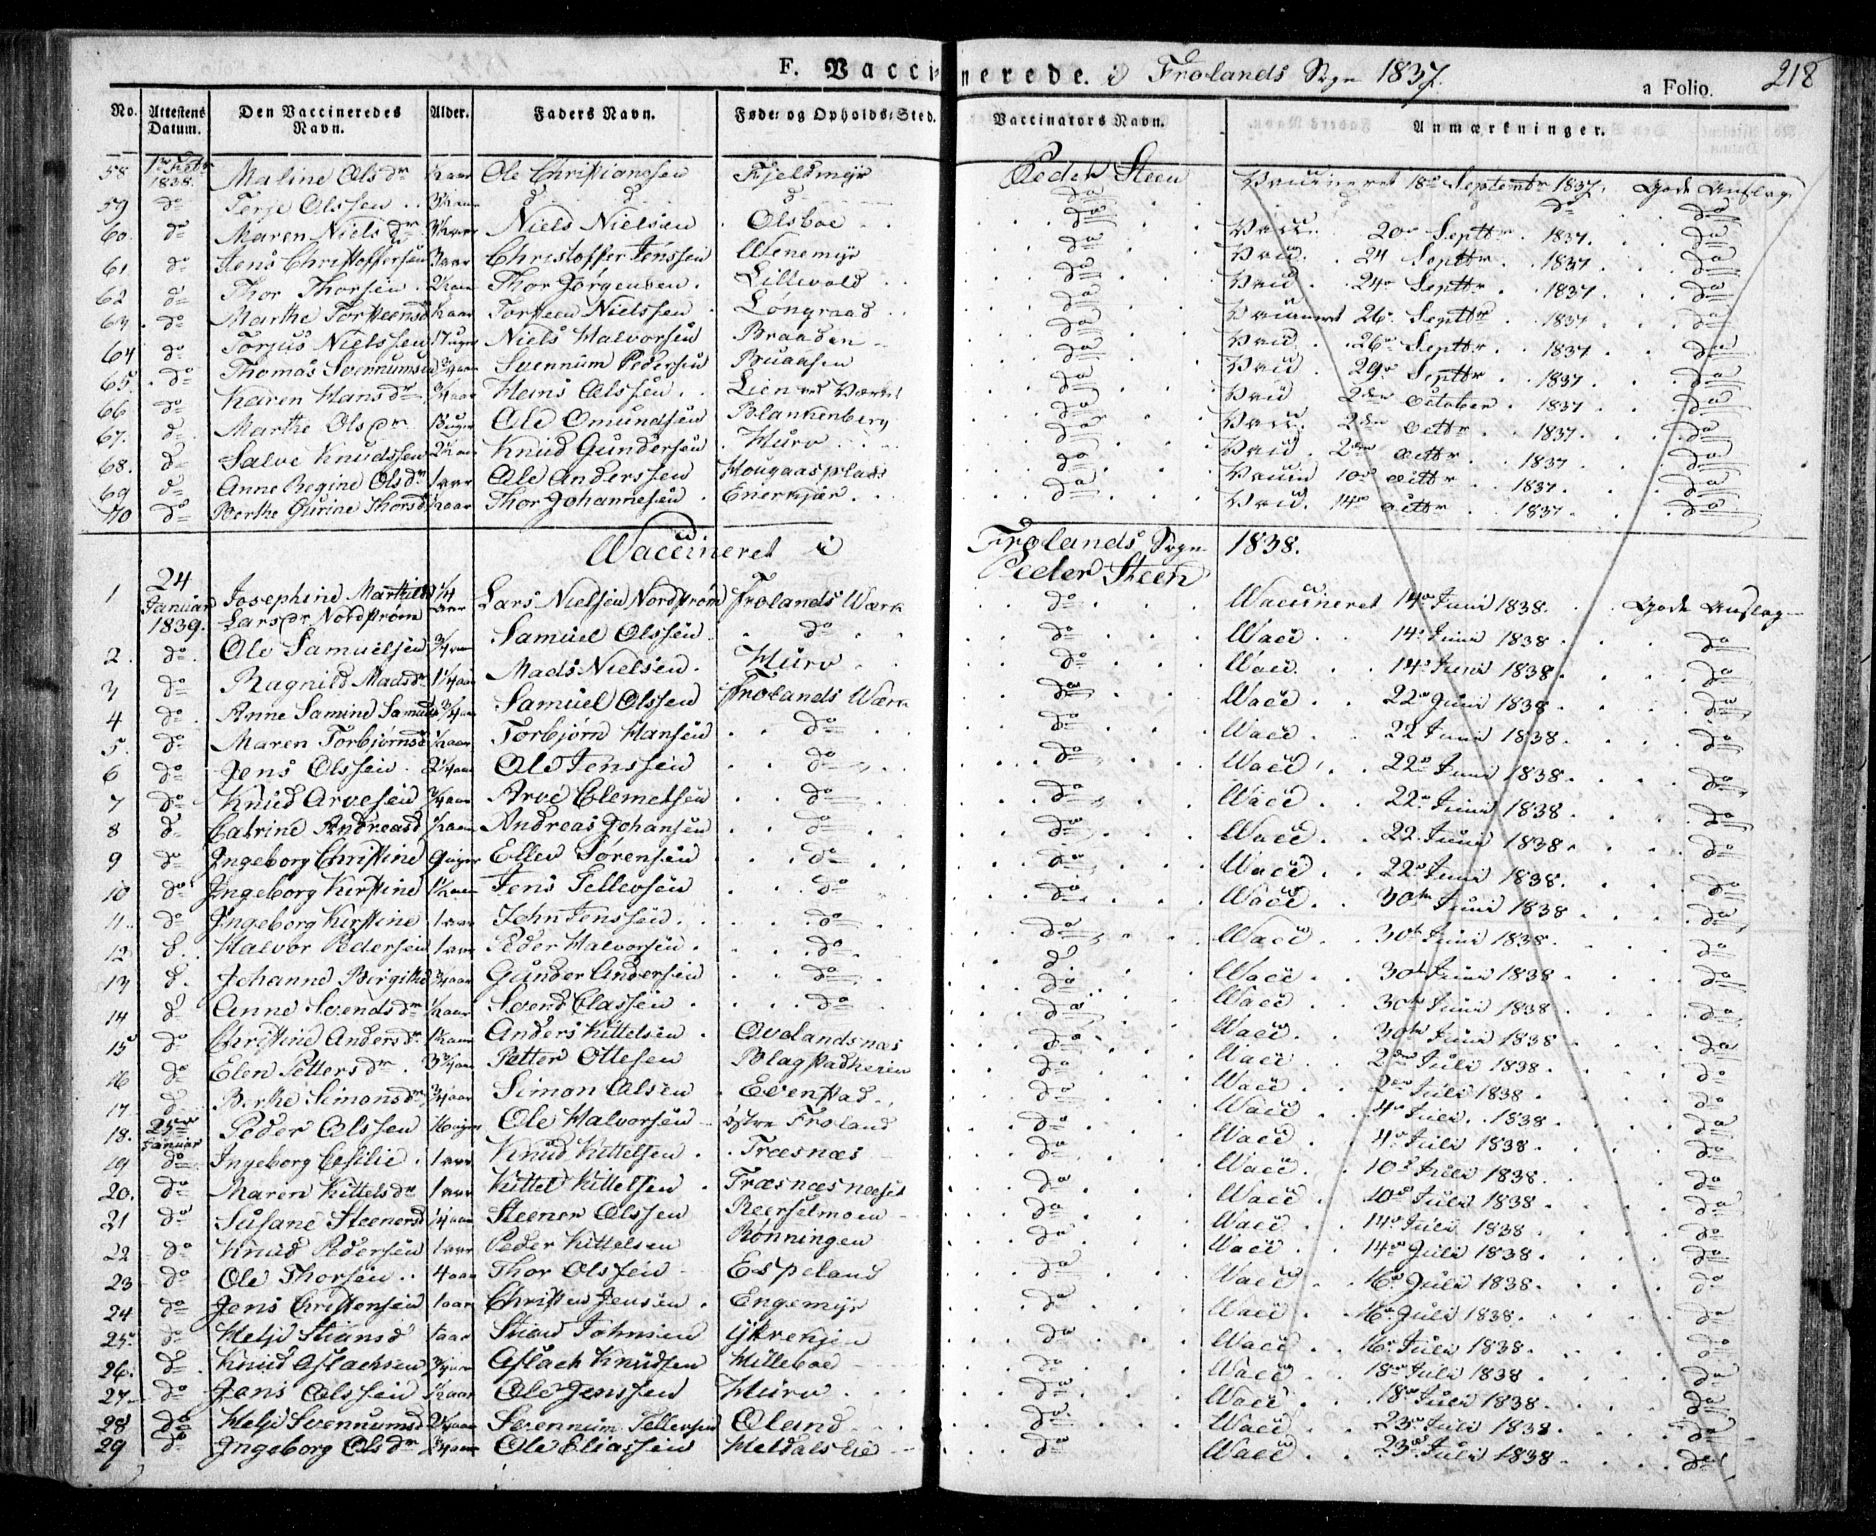 F. Vaccinerede. i Frolands Sogn 1837. a Folio. 218
No. Attestens Datum. Den Vaccineredes Navn. Alder. Faders Navn. Føde- og Opholds-Sted. Vaccinators Navn. Anmærkninger.
58 1838. Maline Olsdr Ole Christianssen Fjeldmyr Peder Steen Vaccineret 18de Septembr 1837. Gode Anslag.
59 do Terje Olssen do do do do
60. do Maren Nielsdr Niels Nielsen Olsboe do Vacc. 20de Septbr. 1837. do
61. do Jens Christoffersen 3 aar Christoffer Jenssen Wenemyr do Vacc. 24 Septbr. 1837 do
62 do Thor Thorsen Thor Jørgensen Lillevold do Vacc. 24de Septbr. 1837 do
63. do Marthe Torsteensd Torsteen Nielssen Løngraad do Vaccineret 26de Septbr 1837 do
64 do Torjus Nielssen Niels Halvorsen Braaden do Vacc. 26de Septbr. 1837 do
65. do Thomas Svennumsen Svennum Pedersen Bruaasen do Vacc. 29de Septbr. 1837. do
66 do Karen Hansdr Hans Olssen Lien do Vacc 2den October 1837. do
67. do Marthe Olsdr Ole Omundsen Blankenberg do Vacc. 2den Octbr 1837. do
68. do Salve Knudssen Knud Gundersen Hurv do Vacc. 2den Octbr 1837. do
69 do Anne Regine Olsdr 1 aar Ole Anderssen Hougaasplads do Vaccin 10de Octbr 1837. do
70 do Berthe Gurine Thorsd Thor Johannesen Enerkjær do Vacc. 14de Octbr 1837. do
Waccineret i Frolands Sogn 1838.
Peder Steen
1 24 Januar 1839. Josephine Mathild Larsdr Nordstrøm 1/4 aar Lars Nielsen Nordstrøm Frolands Wærk do Waccineret 14de Juni 1838. Gode Anslag
2. do Ole Samuelsen 3/4 aar Samuel Olssen do do Wacc. 14de Juni 1838 do
3 do Ragnild Madsdr 1 1/4 aar Mads Nielsen Hurv do Wacc. 14de Juni 1838. do
4 do Anne Samine Samuels 3/4 aar Samuel Olssen Frolands Wærk do Wacc. 22de Juni 1838 do
5. do Maren Torbjørnsd Torbjørn Hansen do do Wacc. 22 Juni 1838. do
6 do Jens Olssen 2 1/4 aar Ole Jenssen do do Wacc. 22de Juni 1838. do
7 do Knud Arvesen 3/4 aar Arve Clemetsen do do Wacc. 22de Juni 1838 do
8 do Catrine Andreasd Andreas Johansen do do Wacc. 22. Juni 1838. do
9 do Ingeborg Christine 9 uger Ellev Sørensen do do Wacc. 22de Juni 1838. do
10 do Ingeborg Kirstine Jens Tellevsen do do Wacc. 30te Juni 1838 do
11. do Ingeborg Kirstine 1 aar John Jenssen do do Wacc. 30te Juni 1838. do
12 do Halvor Pedersen 1 aar Peder Halvorsen do do Wacc. 30te Juni 1838 do
13 do Johanne Birgitte 3/4 aar Gunder Andersen do do Wacc. 30te Juni 1838 do
14 do Anne Svendsdr Svend Classen do do Wacc. 30te Juni 1838 do
15 do Christine Andersdr Anders Kittelsen Ovelandsnæs do Wacc. 2den Juli 1838. do
16 do Elen Pettersdr 3 3/4 aar Petter Ottesen Blagstadheien do Wacc. 2den Juli 1838 do
17. do Birthe Simonsdr 3/4 aar Simon Olsen Evenstad do Wacc. 4de Juli 1838 do
18. 25de Januar Peder Olssen 16 uger Ole Halvorsen østre Froland do Wacc. 4de Juli 1838 do
19 do Ingeborg Cesilie 1 aar Knud Kittelsen Træsnæs do Wacc. 10de Juli 1838 do
20. do Maren Kittelsdr 1 aar Kittel Kittelsen Træsnæsnæset do Wacc. 10de Juli 1838 do
21 do Susane Steenersd 1/4 aar Steener Olssen Reerselmoen do Wacc. 14de Juli 1838 do
22 do Knud Pedersen 1 aar Peder Kittelsen Rønningen do Wacc. 14de Juli 1838. do
23 do Ole Thorsen 4 aar Thor Olssen Espeland do Wacc. 16de Juli 1838. do
24 do Jens Christensen 1 aar Christen Jensen Engemyr do Wacc. 16de Juli 1838. do
25. do Helje Stiansd Stian Johnsen do Wacc. 16de Juli 1838. do
26. do Knud Aslachsen 3/4 aar Aslach Knudsen Hilleboe do Wacc. 18de Juli 1838 do
27 do Jens Olssen Ole Jenssen Hurv do Wacc. 18de Juli 1838 do
28 do Helje Svennumsd 2 1/4 aar Svennum Tellevsen Øland do Wacc. 23de Juli 1838. do
29 do Ingeborg Olsdr 3/4 aar Ole Eliassen Heldalslie do Wacc. 23de Juli 1838 do